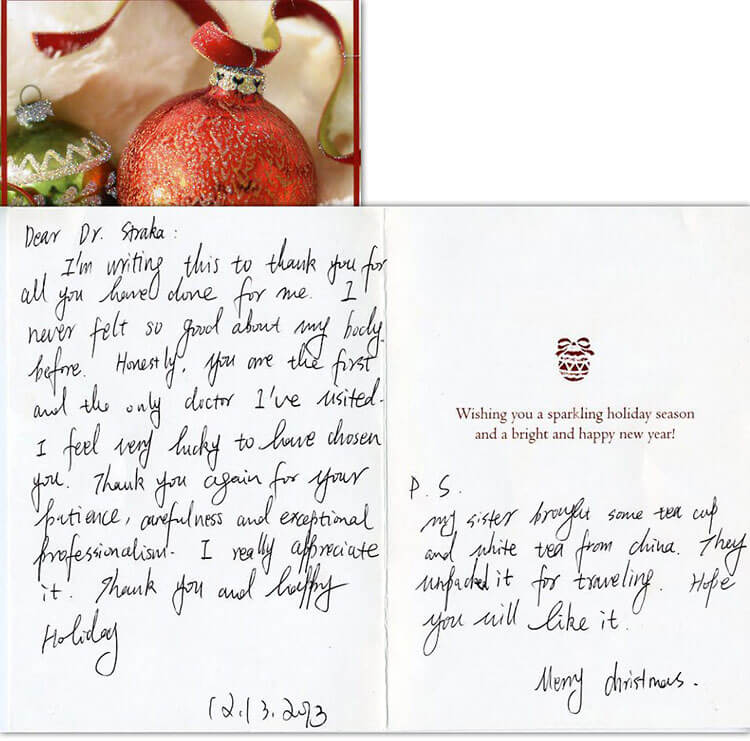 Dear Dr. Straka:
I'm writing this to thank you for
all you have done for me. I
never felt so good about my body
before. Honestly, you are the first
and the only doctor I've visited.
I feel very lucky to have chosen
you. Thank you again for your
patience, carefulness and exceptional
professionalism. I really appreciate
it. Thank you and happy
Holiday
12.13.2013
Wishing you a sparkling holiday season
and a bright and happy new year!
P.S.
my sister brought some tea cup
and white tea from china. They
unpacked it for traveling. Hope
you will like it.
Merry christmas.